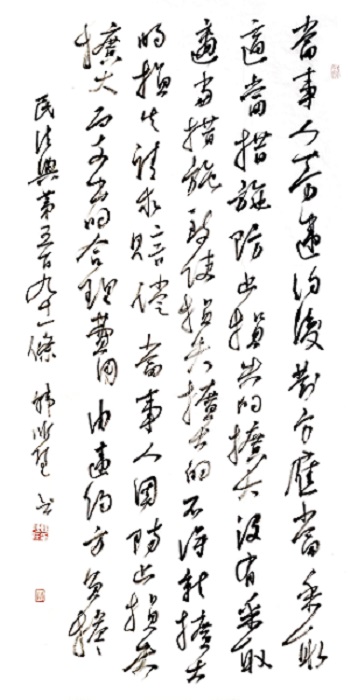 當事人一方違約後對方應當采取
適當措施防止損失的擴大沒有采取
適当措施致使損失擴大的不得就擴大
的損失請求賠償當事人因防止損失
擴大而支出的合理費用由違約方負擔
民法典第五百九十一條 韩 书